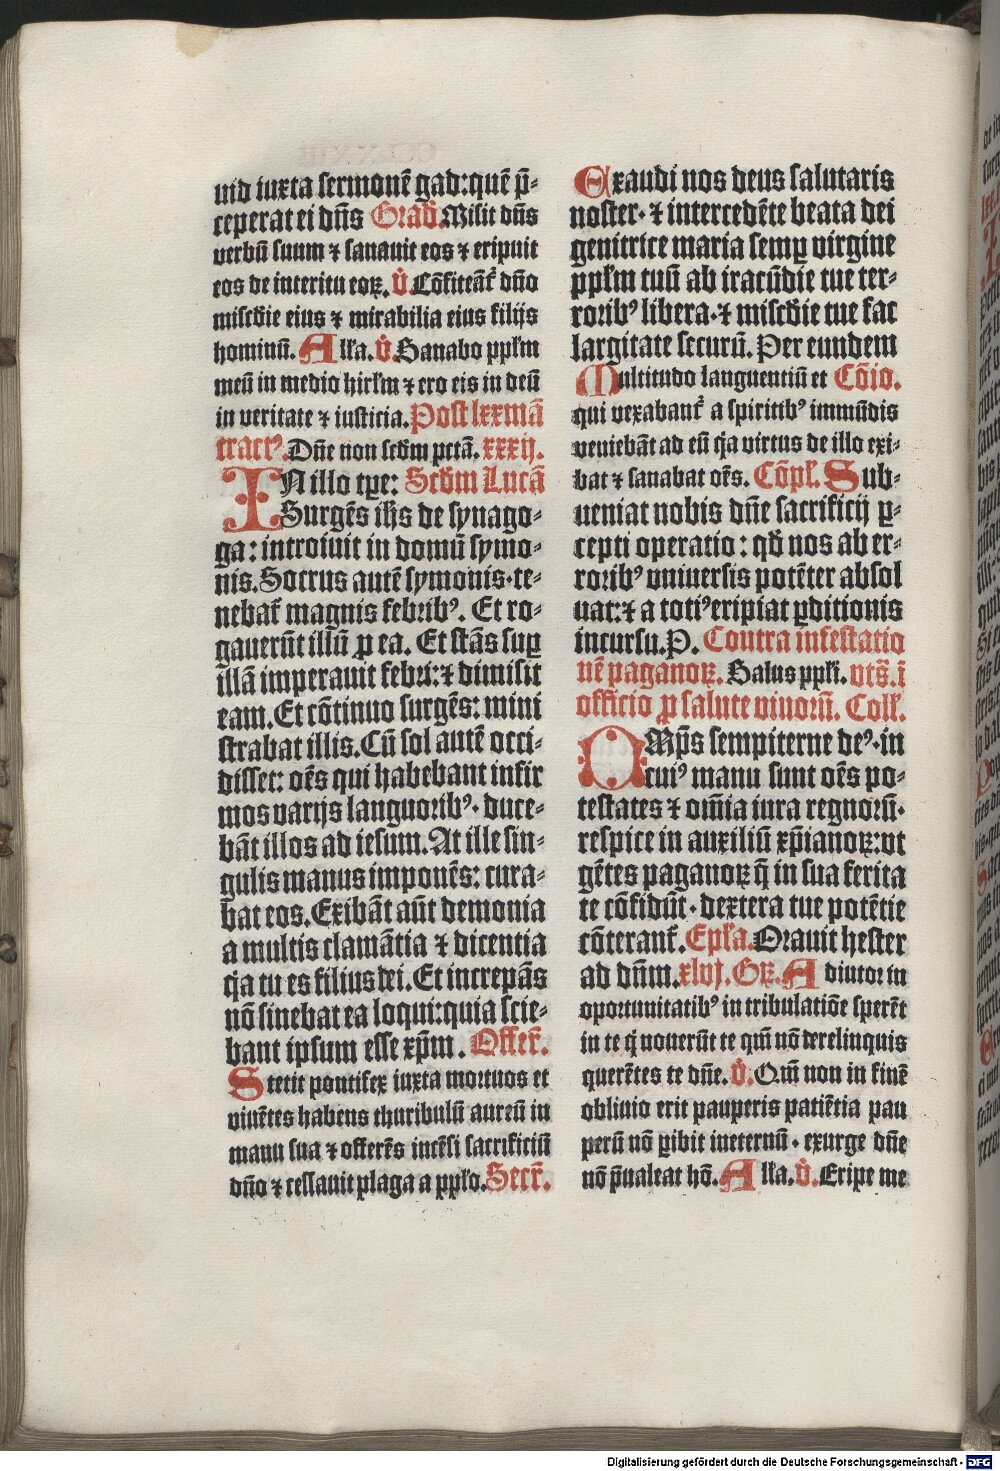 uid iuxta sermonē gad: quē p̄-
ceperat ei dn̄s Grad̄. Misit dn̄s
verbū suum ⁊ sanauit eos ⁊ eripuit
eos de interitu eoꝝ. V̊. Cōfiteāt᷑ dn̄o
miscd̄ie eius ⁊ mirabilia eius filijs
hominū. Alla. V̊. Sanabo ppłm
meū in medio hirłm ⁊ ero eis in deū
in veritate ⁊ iusticia. Post lxxmā
tractꝰ. Dn̄e non scd̄m pctā. xxxij.
IN illo tꝑe: Scd̄m Lucā
Surgēs ih̄s de synago-
ga: introiuit in domū symo-
nis. Socrus autē symonis. te-
nebat᷑ magnis febribꝰ. Et ro-
gauerūt illū ꝓ ea. Et stās suꝑ
illā imperauit febri: ⁊ dimisit
eam. Et cōtinuo surgēs: mini
strabat illis. Cū sol autē occi-
disset: oēs qui habebant infir
mos varijs languoribꝰ. duce-
bāt illos ad iesum. At ille sin-
gulis manus imponēs: cura-
bat eos. Exibāt aūt demonia
a multis clamātia ⁊ dicentia
q̇a tu es filius dei. Et increpās
nō sinebat ea loqui: quia scie-
bant ipsum esse xp̄m. Offer̄.
Stetit pontifex iuxta mortuos et
viuētes habens thuribulū aureū in
manu sua ⁊ offerēs incēsi sacrificiū
dn̄o ⁊ cessauit plaga a ppło. Secr̄.
Exaudi nos deus salutaris
noster. ⁊ intercedēte beata dei
genitrice maria semꝑ virgine
ppłm tuū ab iracūdie tue ter-
roribꝰ libera. ⁊ miscd̄ie tue fac
largitate securū. Per eundem
Multitudo languentiū et Cōio.
qui vexabant᷑ a spiritibꝰ immūdis
veniebāt ad eū q̇a virtus de illo exi-
bat ⁊ sanabat oēs. Cōpł. Sub-
ueniat nobis dn̄e sacrificij ꝑ-
cepti operatio: qd̄ nos ab er-
roribꝰ vniuersis potēter absol
uat: ⁊ a totiꝰ eripiat ꝑditionis
incursu. P. Contra infestatio
nē paganoꝝ. Salus ppłi. vts̄. ī
officio ꝓ salute viuorū. Coll̄.
OMp̄s sempiterne deꝰ. in
cuiꝰ manu sunt oēs po-
testates ⁊ om̄ia iura regnorū.
respice in auxiliū xp̄ianoꝝ: vt
gētes paganoꝝ q̄ in sua ferita
te cōfidūt. dextera tue potētie
cōterant᷑. Epła. Orauit hester
ad dn̄m. xlvj. Gꝝ. Adiutor in
oportunitatibꝰ in tribulatiōe sperēt
in te q̇ nouerūt te qm̄ nō derelinquis
querētes te dn̄e. V̊. Qm̄ non in finē
obliuio erit pauperis patiētia pau
perū nō ꝑibit ineternū. exurge dn̄e
nō p̄ualeat hō. Alla. V̊. Eripe me
Digitalisierung gefördert durch die Deutsche Forschungsgemeinschaft - DFG